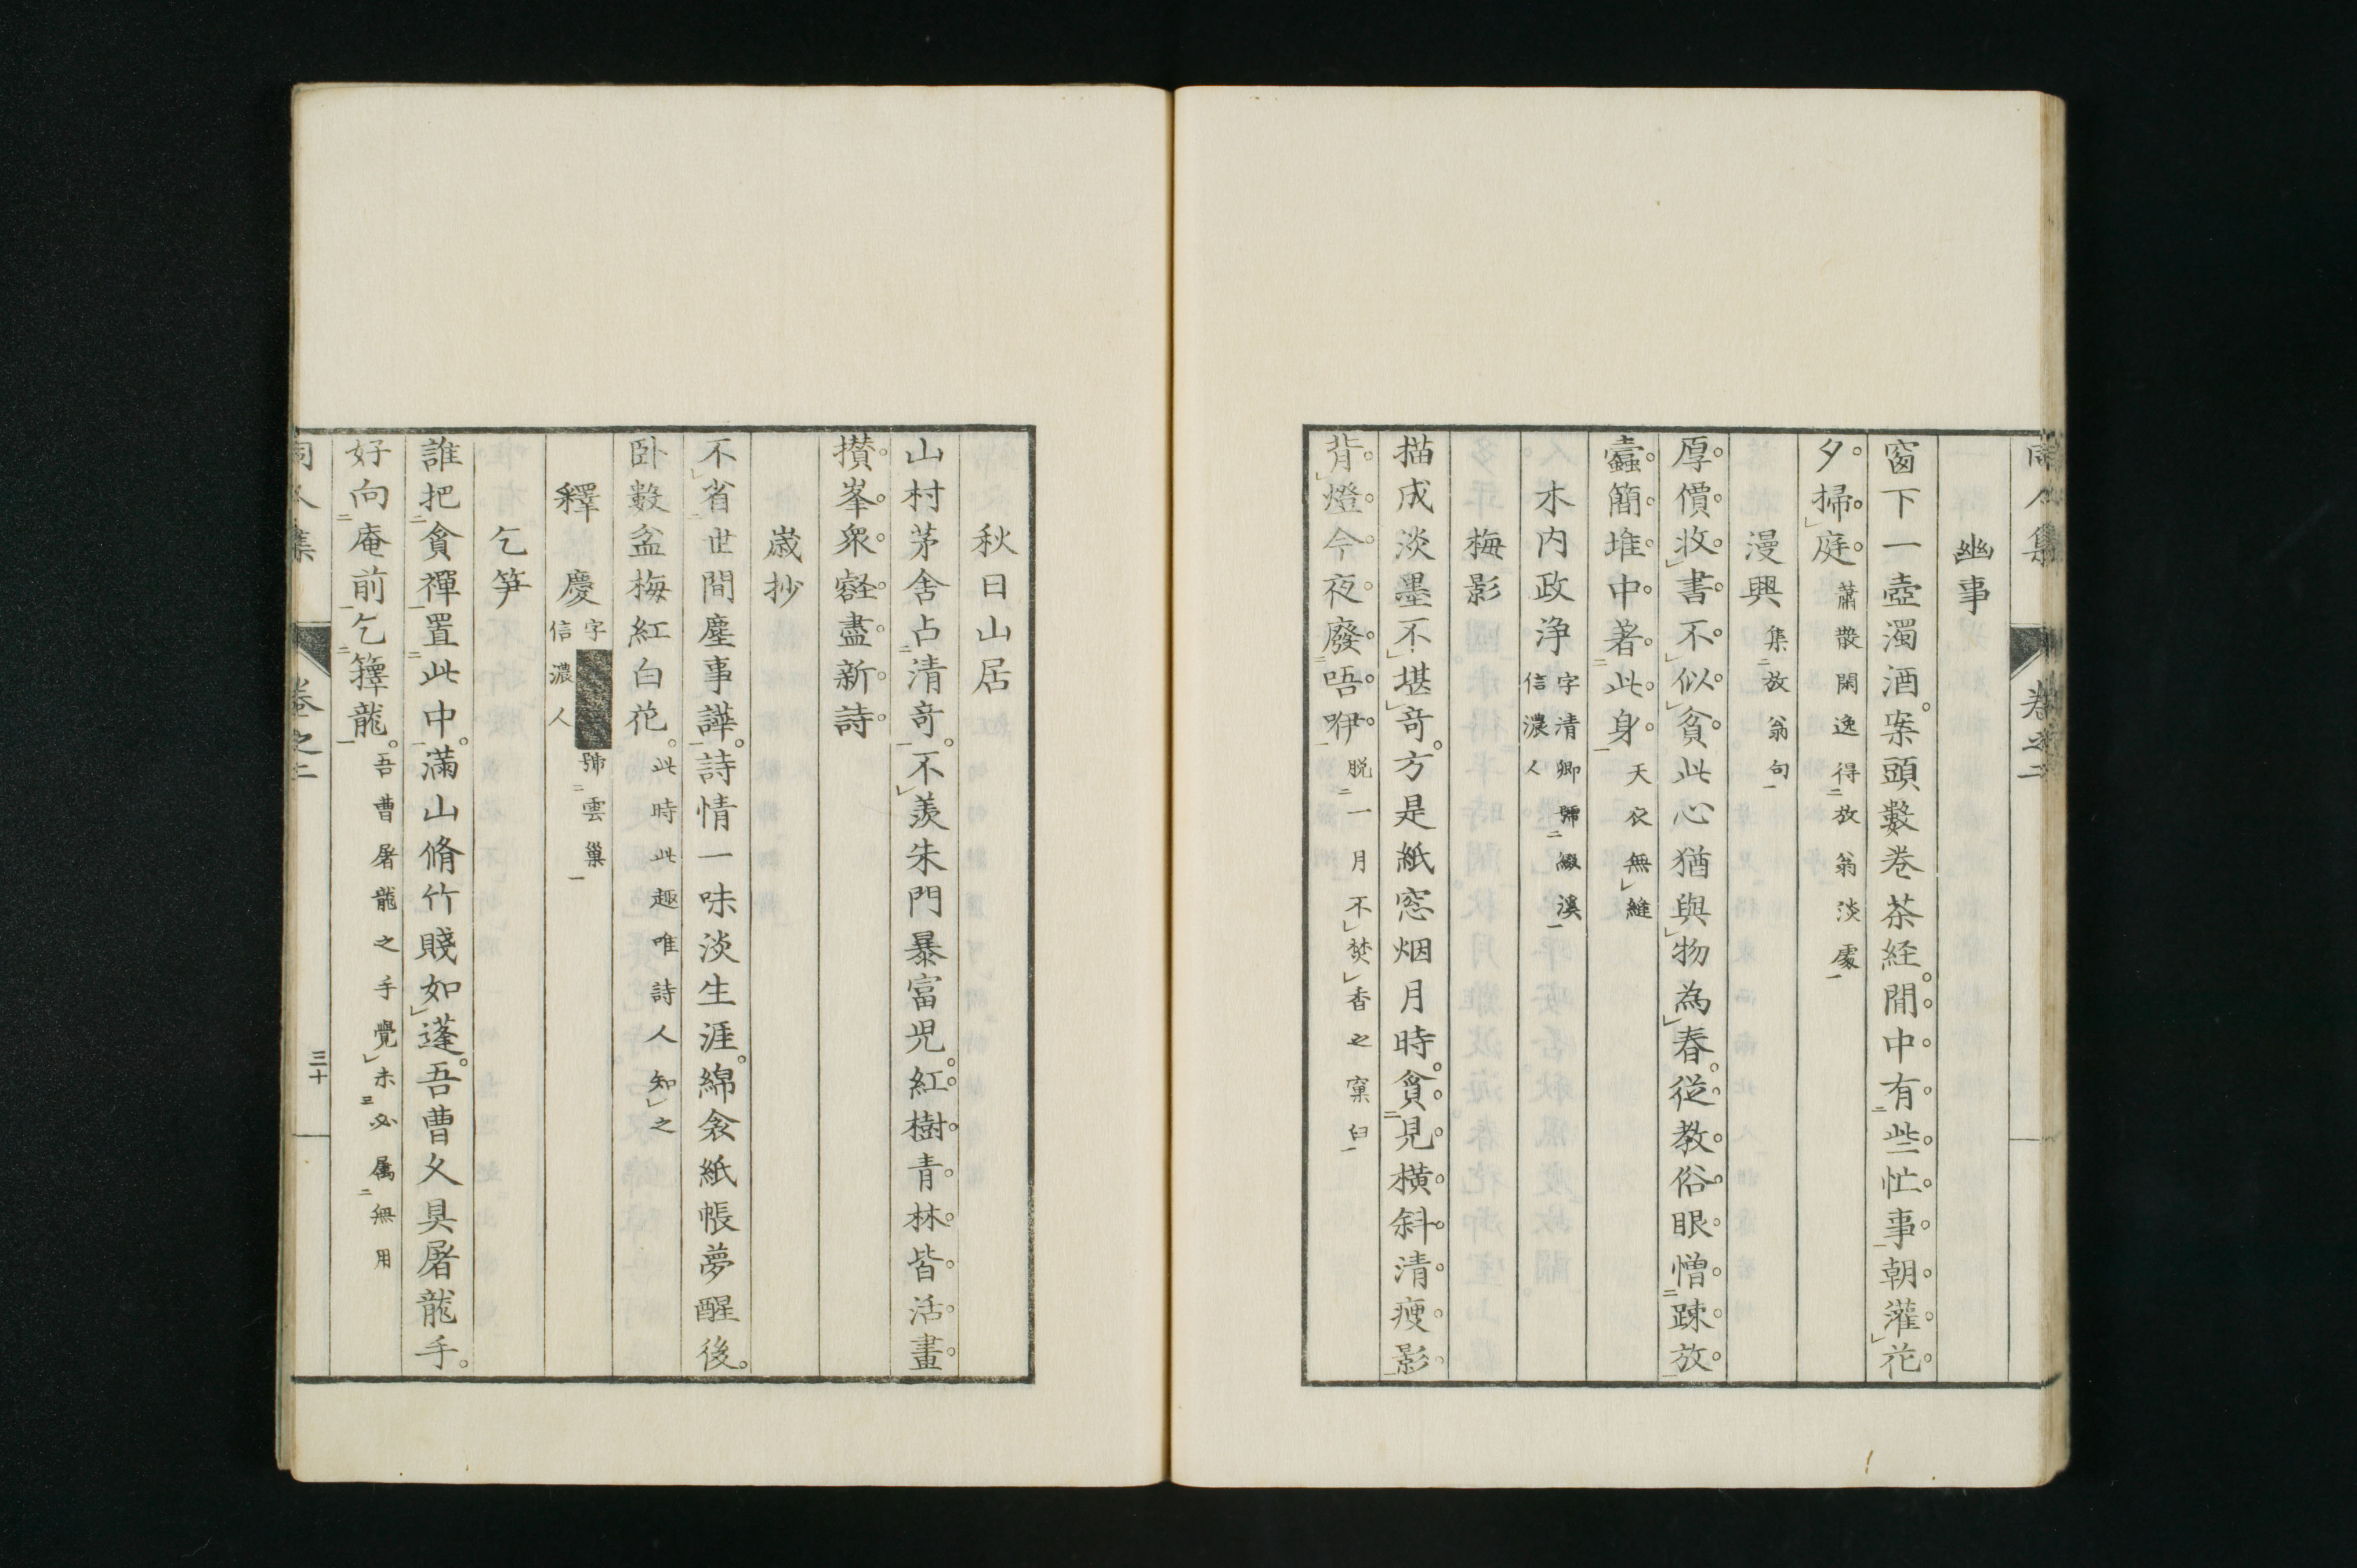 幽事
窗下一壺濁酒。案頭數卷茶経。閒中有些忙事。朝灌花
夕掃庭。蕭散閑逸得放翁淡處
漫興集放翁句
厚價收書不似貧。此心猶與物為春。從教俗眼憎踈放
蠹簡堆中著此身。天衣無縫
木内政浄字清卿號緱溪
信濃人
梅影
描成淡墨不堪竒。方是紙窓烟月時。貪見橫斜清瘦影
背燈今夜廢唔咿。脱一月不焚香之窠臼
秋日山居
山村茅舍占清竒。不羨朱門暴富児。紅樹青林皆活畫
攅峯衆壑盡新詩
歳抄
不省世間塵事譁。詩情一味淡生涯。綿衾紙帳夢醒後。
卧數盆梅紅白花。此時此趣唯詩人知之
釋慶字號雲巢
信濃人
乞笋
誰把貪禪置此中。滿山脩竹賤如蓬。吾曹久具屠龍手。
好向庵前乞籜龍。吾曹屠龍之手覺未必属無用
卷之二
三十